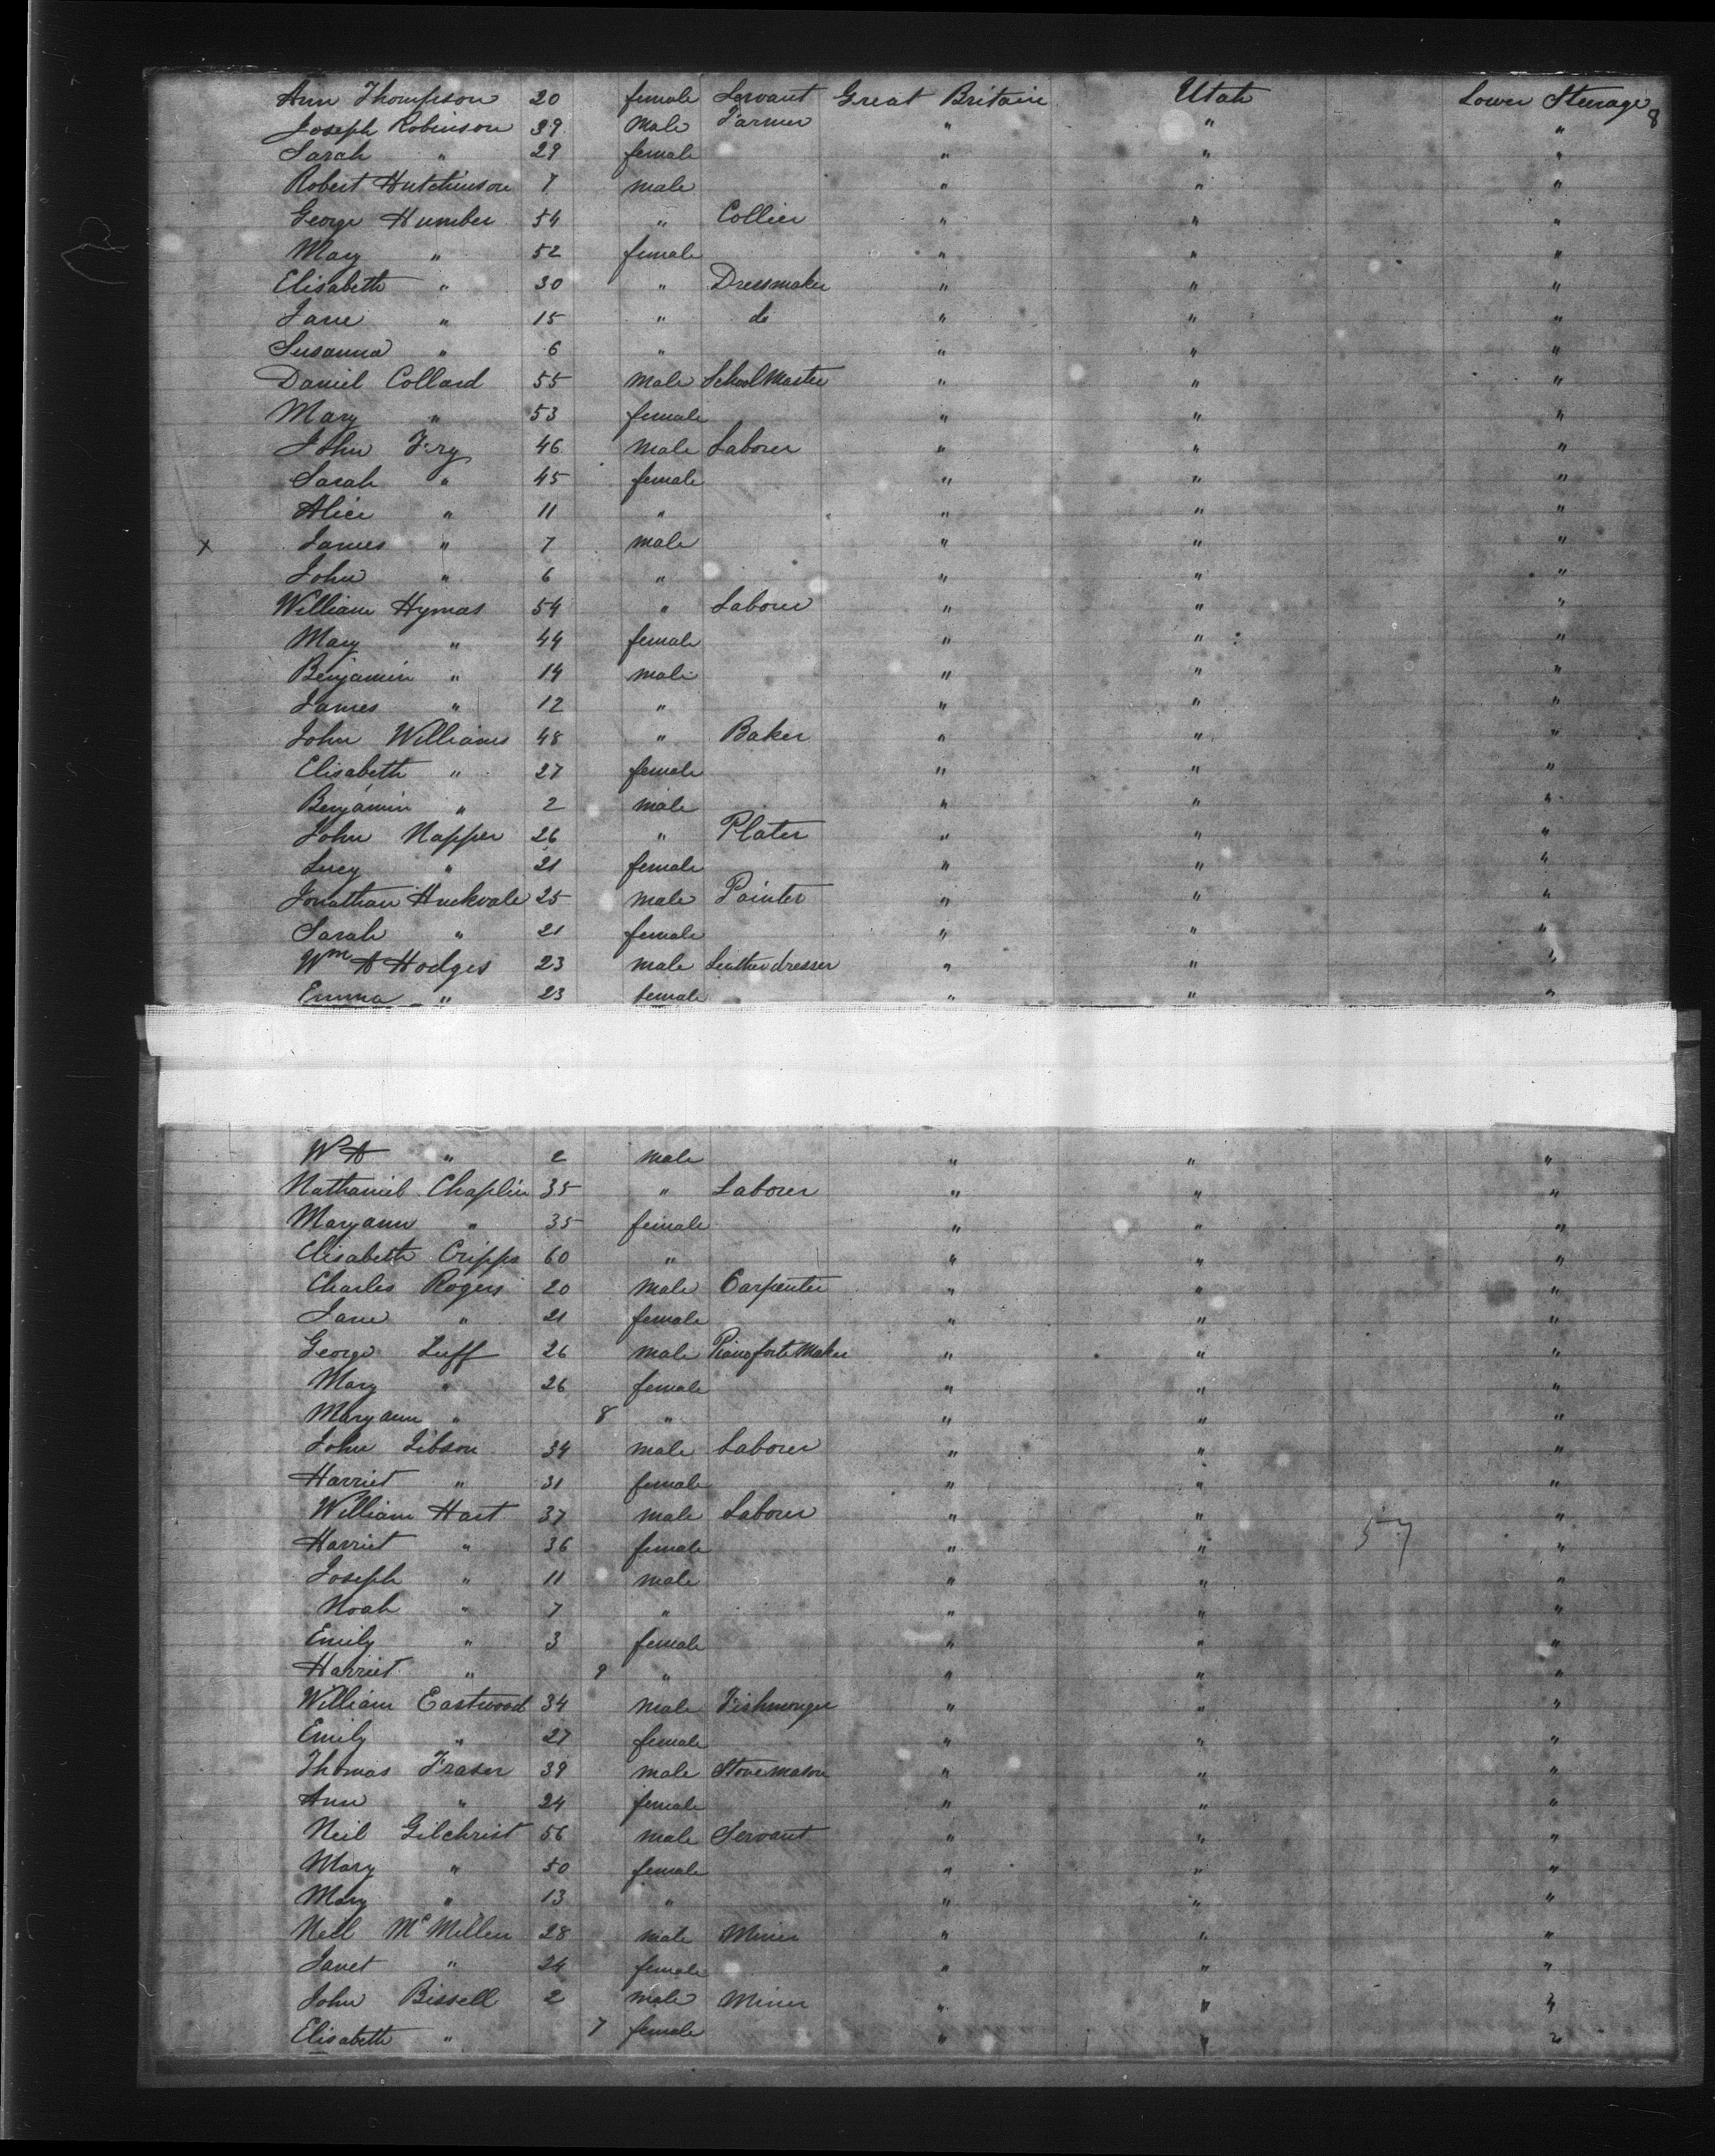 Ann Thompson 20 female Servant Great Britain Utah Lower Steerage 8
Joseph Robinson 39 Male Farmer " " "
Sarah " 29 female " " "
Robert Hutchinson 7 male " " "
George Humber 54 " Collier " " "
Mary " 52 female " " "
Elisabeth " 30 " Dressmaker " " "
Jane " 15 " do " " "
Susanna " 6 " " " "
Daniel Collard 55 Male School Master " " "
Mary " 53 female " " "
John Fry 46 Male Laborer " " "
Sarah " 45 female " " "
Alice " 11 " " " "
x James " 7 male " " "
John " 6 " " " "
William Hymas 54 " Laborer " " "
Mary " 44 female " " "
Benjamin " 14 male " " "
James " 12 " " " "
John Williams 48 " Baker " " "
Elisabeth " 27 female " " "
Benjamin " 2 male " " "
John Napper 26 " Plater " " "
Lucy " 21 female " " "
Jonathan Huckvale 25 male Painter " " "
Sarah " 21 female " " "
Wm A Hodges 23 male Leather dresser " " "
Emma " 23 female " " "
W A " 2 male " " "
Nathaniel Chaplin 35 " Laborer " " "
Maryann " 35 female " " "
Elisabeth Cripps 60 " " " "
Charles Rogers 20 Male Carpenter " " "
Jane " 21 female " " "
George Luff 26 male Pianoforte Maker " " "
Mary " 26 female " " "
Maryann " 8 " " " "
John Gibson 34 male Laborer " " "
Harriet " 31 female " " "
William Hart 37 male Laborer " " "
Harriet " 36 female " " 57 "
Joseph " 11 male " " "
Noah " 7 " " " "
Emily " 3 female " " "
Harriet " 9 " " " "
William Eastwood 34 Male Fishmonger " " "
Emily " 27 female " " "
Thomas Fraser 39 male Stonemason " " "
Ann " 24 female " " "
Neil Gilchrist 56 male Servant " " "
Mary " 50 female " " "
Mary " 13 " " " "
Neil McMillen 28 male Miner " " "
Janet " 24 female " " "
John Bissell 2 male Miner " " "
Elisabeth " 7 female " " "